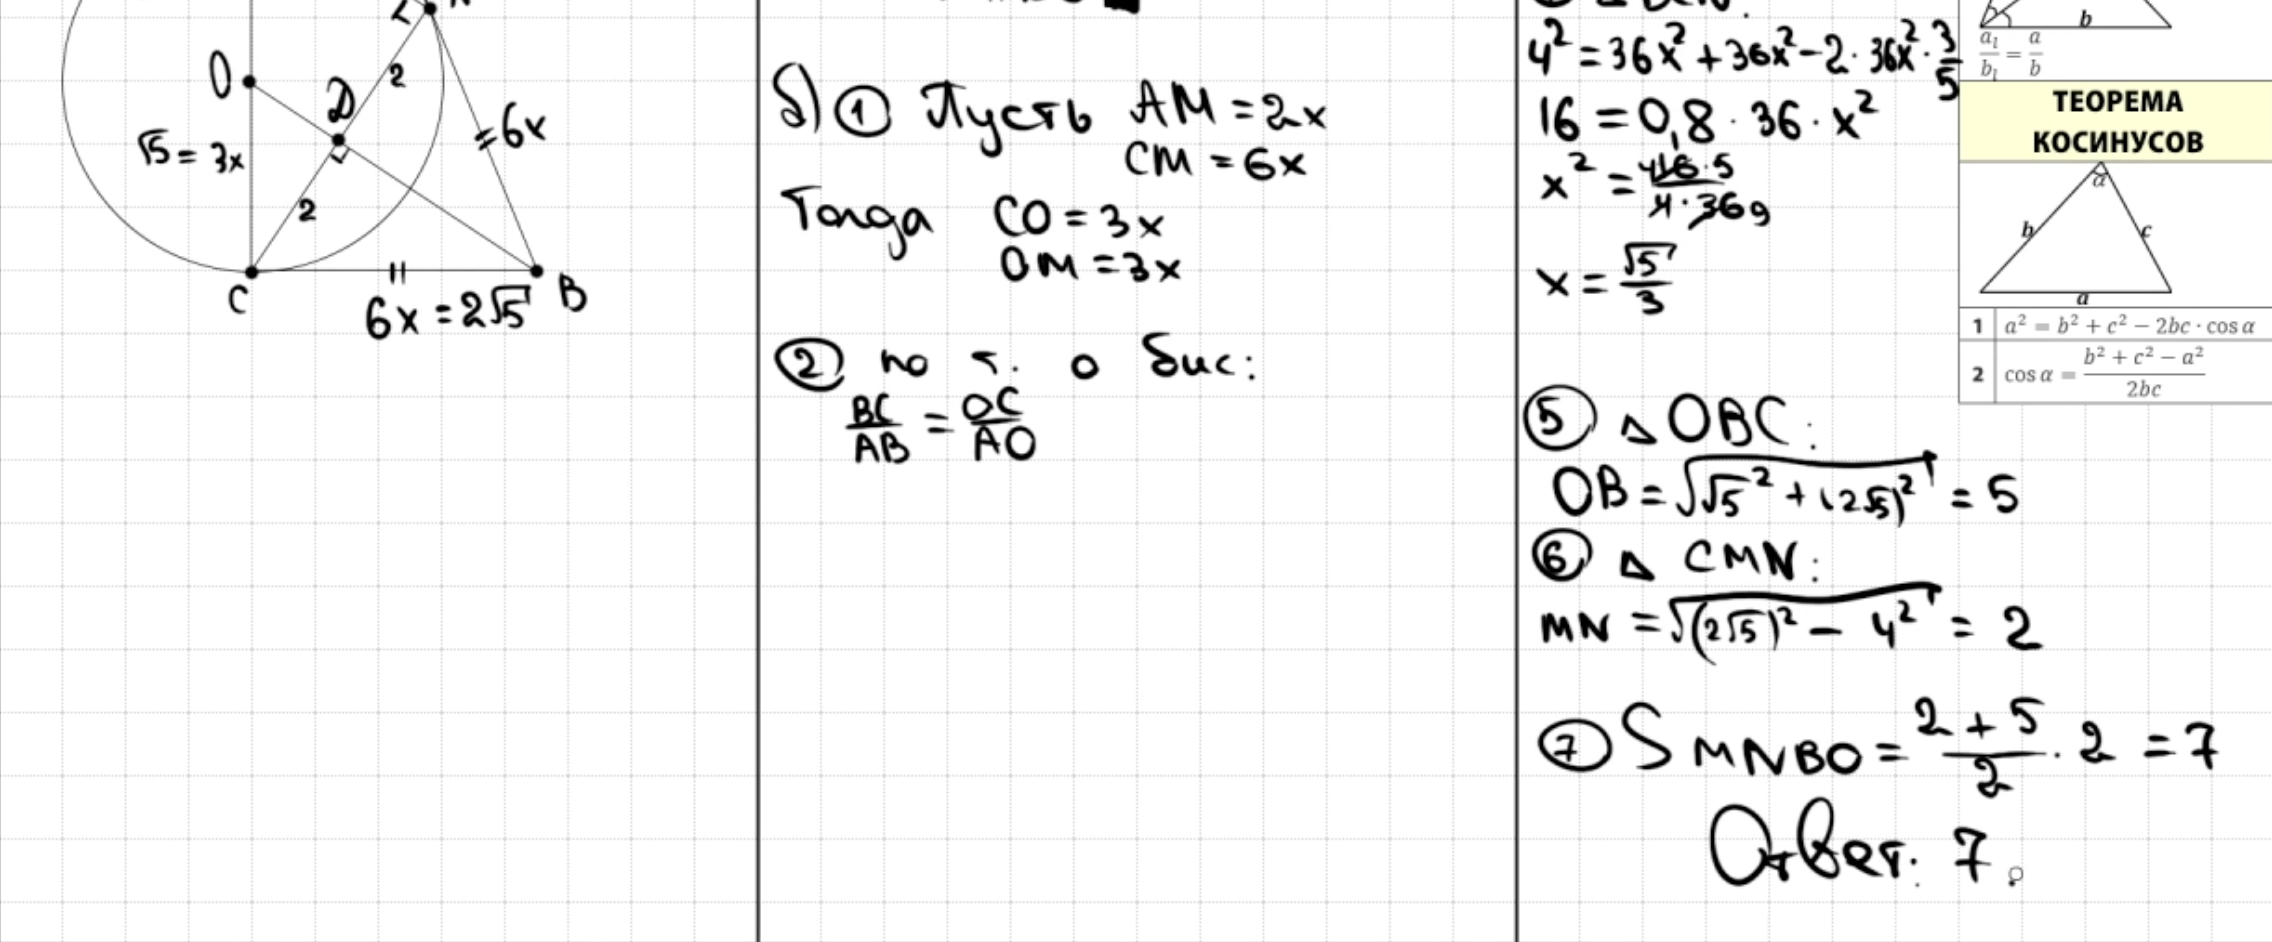 O
D
2
=6x
√5 = 3x
2
C
B
6x = 2√5
б) ① Пусть AM = 2x
CM = 6x
Тогда CO = 3x
OM = 3x
② по т. о бис:
BC/AB = OC/AO
4² = 36x² + 36x² − 2 · 36x² · 3/5
16 = 0,8 · 36 · x²
x² = 416·5/4·369
x = √5/3
⑤ △ OBC:
OB = √(√5² + (2√5)²) = 5
⑥ △ CMN:
MN = √((2√5)² − 4²) = 2
⑦ S MNBO = (2 + 5)/2 · 2 = 7
Ответ: 7.
b
a₁/b₁ = a/b
ТЕОРЕМА
КОСИНУСОВ
α
b
c
a
1 a² = b² + c² − 2bc · cos α
2 cos α = (b² + c² − a²)/2bc